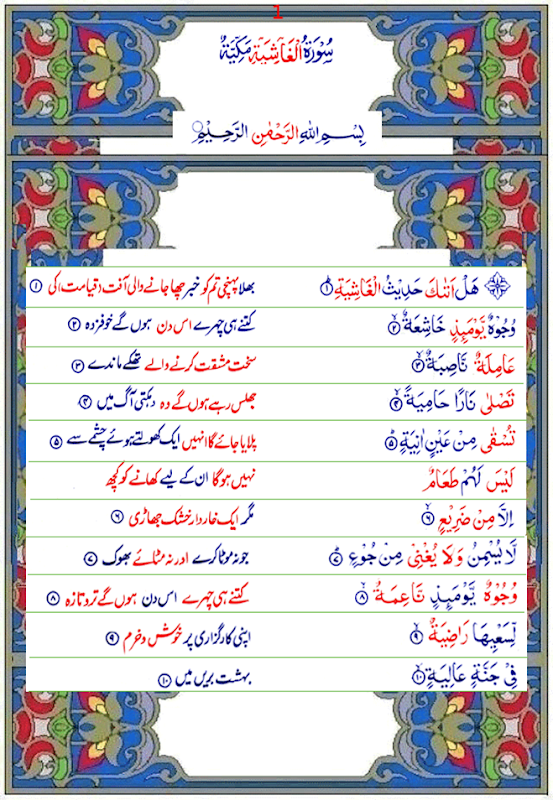 1
سُوۡرَةُ الۡغَاشِيَةِ مَكِّيَّةٌ
بِسۡمِ اللهِ الرَّحۡمٰنِ الرَّحِيۡمِ
هَلۡ اَتٰٮكَ حَدِيۡثُ الۡغَاشِيَةِؕ ۱ بھلا پہنچی تم کو خبر چھا جانے والی آفت (قیامت) کی ۱
وُجُوۡهٌ يَّوۡمَٮِٕذٍ خَاشِعَةٌ ۙ ۲ کتنے ہی چہرے اس دن ہوں گے خوفزدہ ۲
عَامِلَةٌ نَّاصِبَةٌ ۙ ۳ سخت مشقت کرنے والے تھکے ماندے ۳
تَصۡلٰى نَارًا حَامِيَةً ۙ ۴ جھلس رہے ہوں گے وہ دہکتی آگ میں ۴
تُسۡقٰى مِنۡ عَيۡنٍ اٰنِيَةٍؕ ۵ پلایا جائے گا انہیں ایک کھولتے ہوئے چشمے سے ۵
لَيۡسَ لَهُمۡ طَعَامٌ نہیں ہوگا ان کے لیے کھانے کو کچھ
اِلَّا مِنۡ ضَرِيۡعٍۙ ۶ مگر ایک خاردار خشک جھاڑی ۶
لَّا يُسۡمِنُ وَلَا يُغۡنِىۡ مِنۡ جُوۡعٍؕ ۷ جو نہ موٹا کرے اور نہ مٹائے بھوک ۷
وُجُوۡهٌ يَّوۡمَٮِٕذٍ نَّاعِمَةٌ ۙ ۸ کتنے ہی چہرے اس دن ہوں گے تروتازہ ۸
لِّسَعۡيِهَا رَاضِيَةٌ ۙ ۹ اپنی کارگزاری پر خوش و خرم ۹
فِىۡ جَنَّةٍ عَالِيَةٍۙ ۱۰ بہشت بریں میں ۱۰